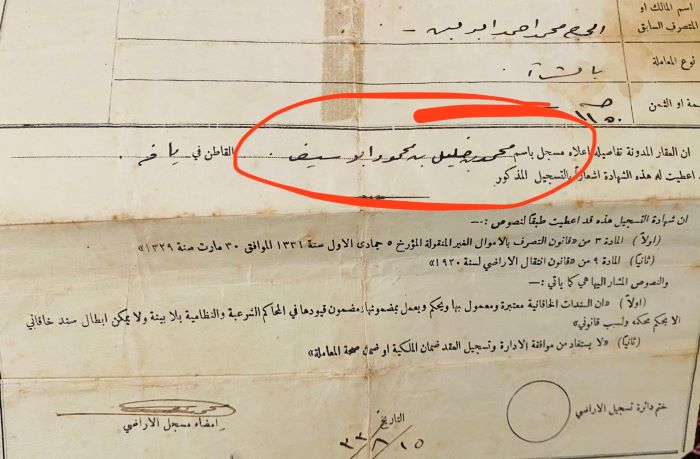 اسم المالك او
المتصرف السابق
الحاج محمد احمد ابو لبن
نوع المعاملة
بالشراء
او الثمن
ان العقار المدونة تفاصيله اعلاه مسجل باسم محمود خليل بن محمود ابو سيف القاطن في يافه
اعطيت له هذه الشهادة اشعاراً بالتسجيل المذكور
ان شهادة التسجيل هذه قد اعطيت طبقا لنصوص :—
(اولاً) المادة ٣ من «قانون التصرف بالاموال الغير المنقولة المؤرخ ٥ جمادى الاول سنة ١٣٣١ الموافق ٣٠ مارت سنة ١٣٢٩»
(ثانيا) المادة ٩ من «قانون انتقال الاراضي لسنة ١٩٢٠»
والنصوص المشار اليها هي كما ياتي :—
(اولاً) «ان السندات الخاقانية معتبرة ومعمول بها ويحكم ويعمل بمضمونها ومضمون قيودها في المحاكم الشرعية والنظامية بلا بينة ولا يمكن ابطال سند خاقاني
الا بحكم محكمه ولسبب قانوني»
(ثانيا) «لا يستفاد من موافقة الادارة وتسجيل العقد ضمان الملكية او ضمان صحة المعاملة»
ختم دائرة تسجيل الاراضي
التاريخ
١٥/٨/٣٣
امضاء مسجل الاراضي